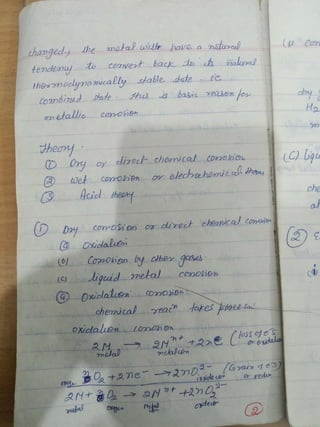 changed, the metal will have a natural
tendency to convert back to its natural
thermodynamically stable state i.e.
combined state. this is basic reason for
metallic corrosion
Theory.
① Dry or direct chemical corrosion
② wet corrosion or electrochemical theory
③ Acid theory
① Dry corrosion or direct chemical corrosion
(a) oxidation
(b) Corrosion by other gases.
(c) liquid metal corrosion
(a) Oxidation corrosion
chemical reacⁿ takes place in
oxidation corrosion
2M → 2Mⁿ⁺ + 2ne⁻ (loss of e⁻s
metal metal ion or oxidation
O₂ + 2ne⁻ → 2nO²⁻ (Gain of e⁻s)
2M + O₂ → 2Mⁿ⁺ + 2nO²⁻
metal Metal
②
(c) liqu
②